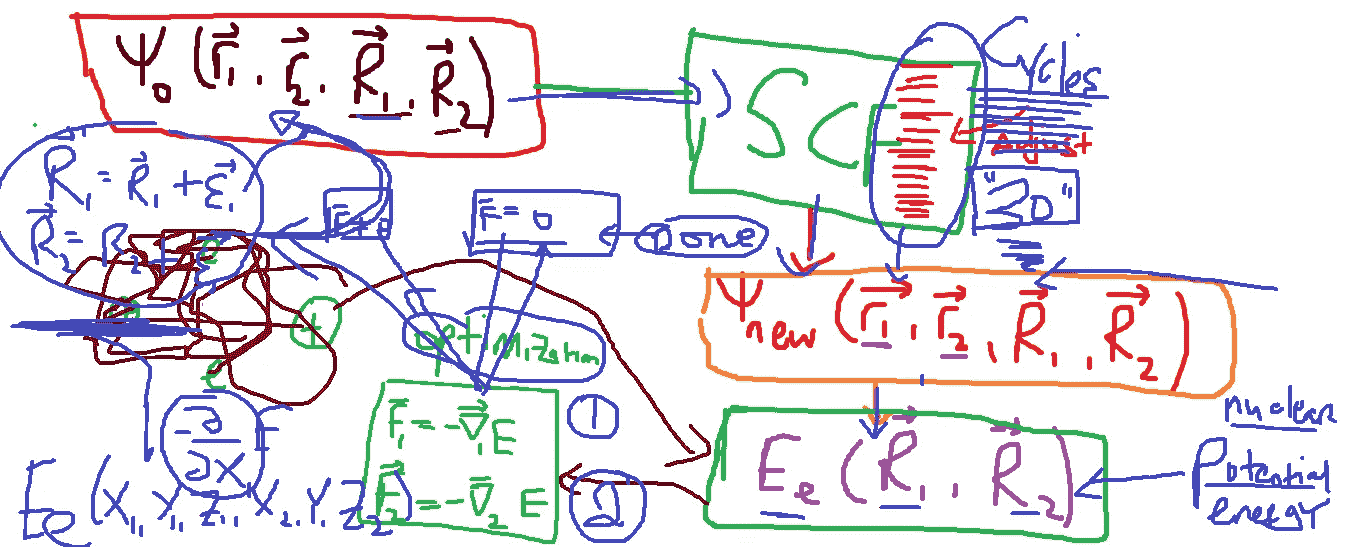 Ψ₀ (r⃗₁, r⃗₂, R⃗₁, R⃗₂)
SCF
Cycles
Adjust
"30"
R₁ = R⃗₁ + ε⃗₁
F⃗ = 0
Done
Ψnew (r⃗₁, r⃗₂, R⃗₁, R⃗₂)
+
optimization
e
F⃗₁ = -∇⃗₁E
F⃗₂ = -∇⃗₂ E
1
2
Eₑ (R⃗₁, R⃗₂)
nuclear
Potential
energy
-∂
∂X
Eₑ (X₁, Y₁, Z₁, X₂, Y₂ Z₂)